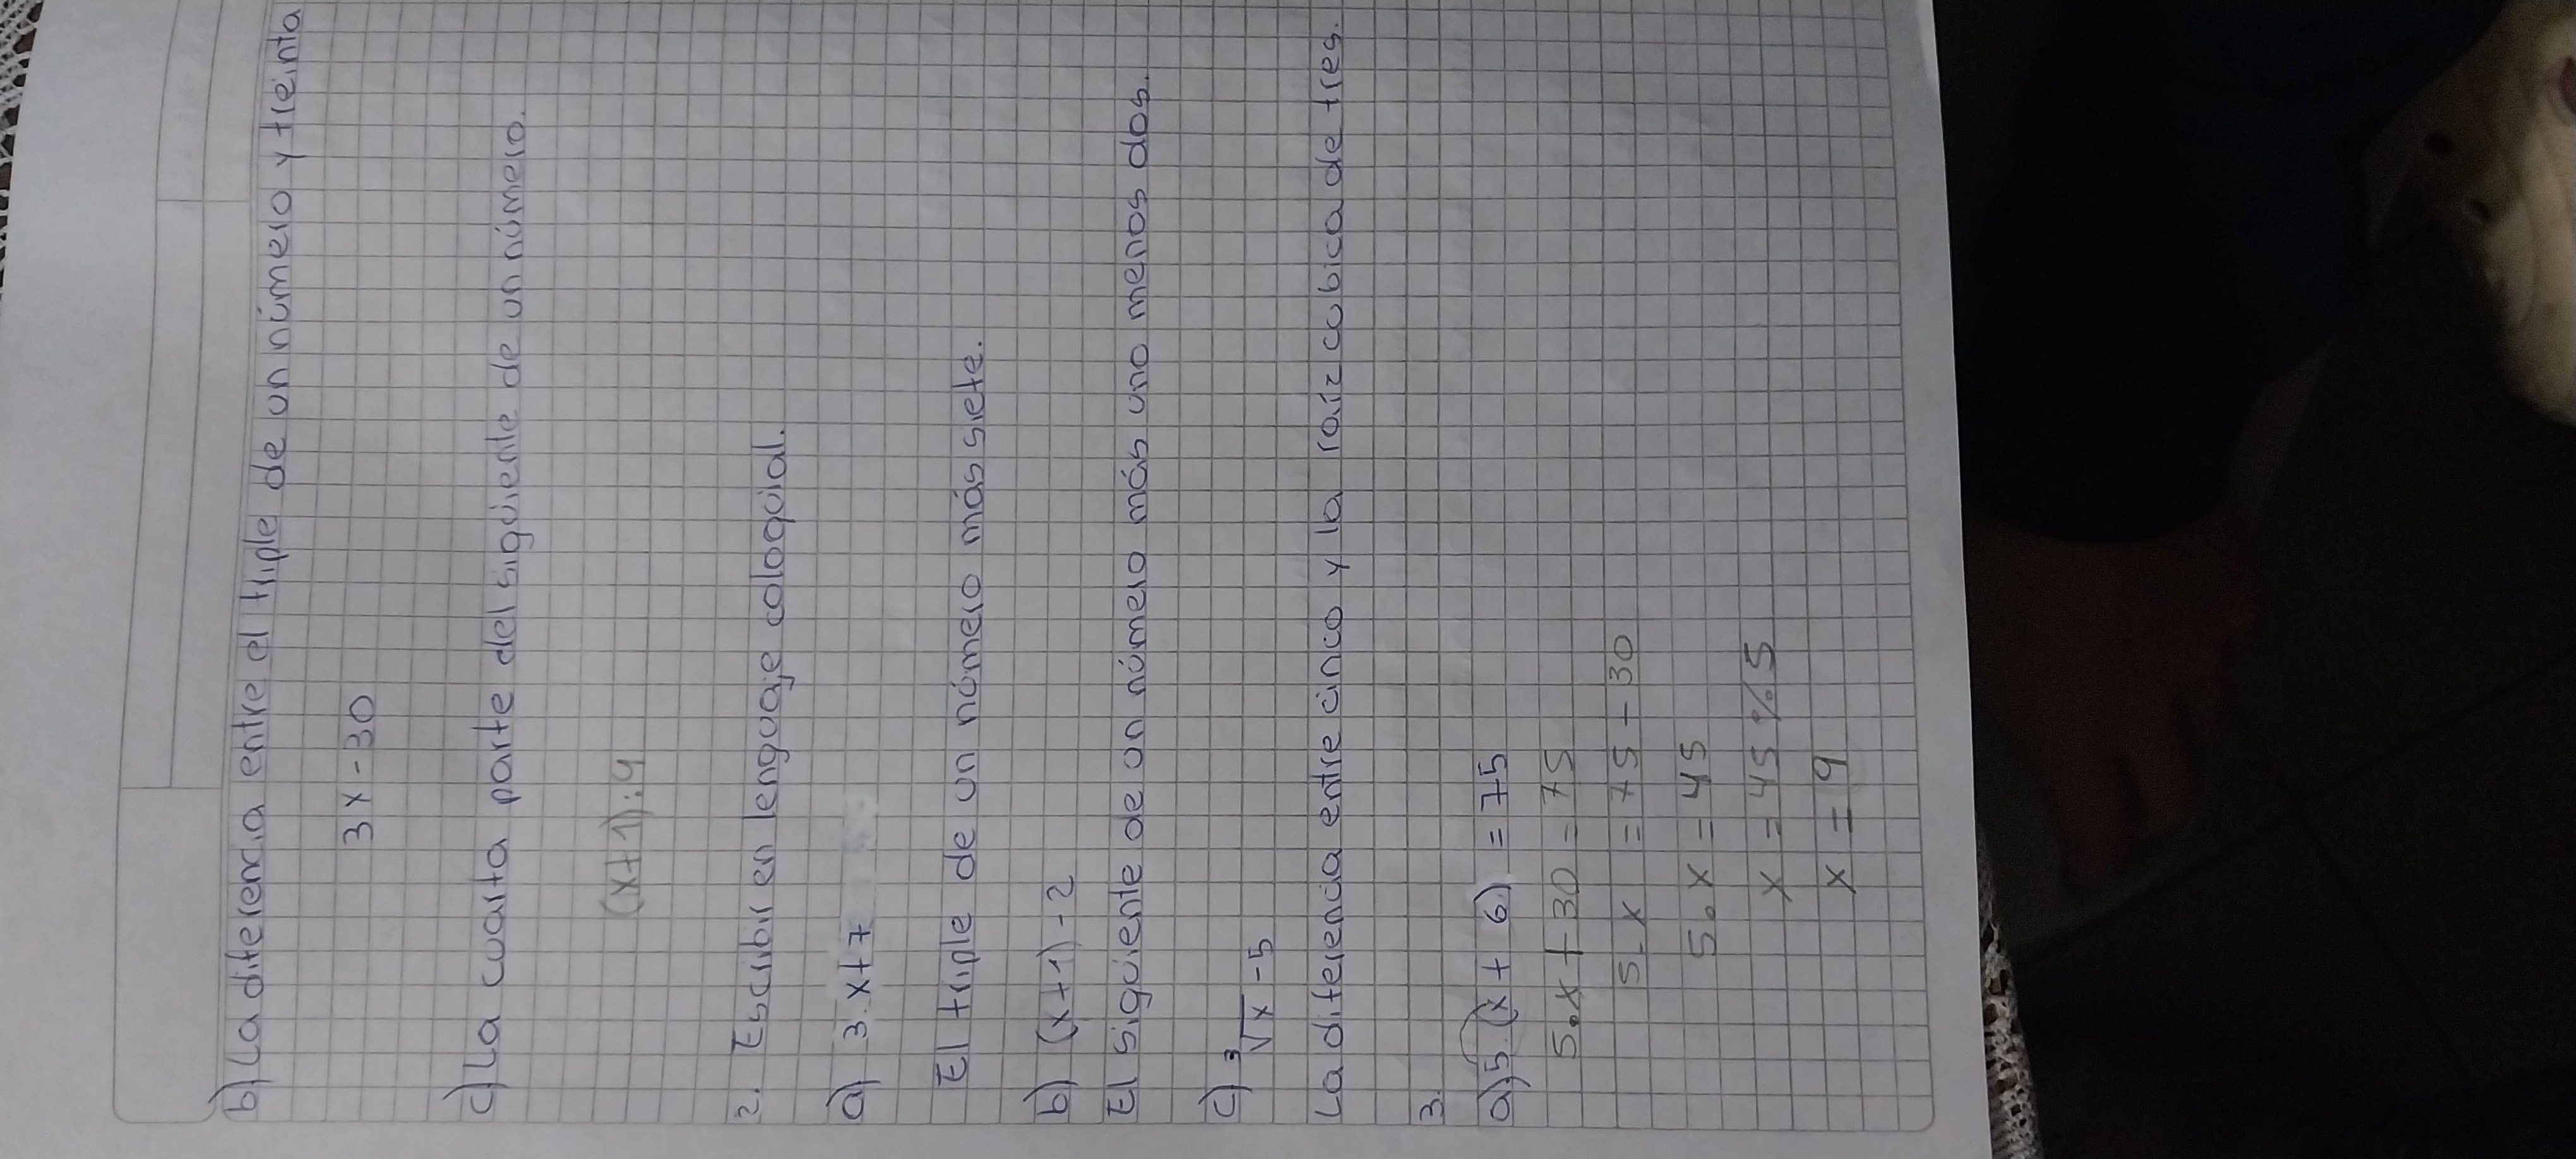 b) La diferencia entre el triple de un número y treinta
3x-30
c) La cuarta parte del sigüiente de un número.
(x+1):4
2. Escribir en lenguaje cologüial.
a) 3.x+7
El triple de un número más siete.
b) (x+1)-2
El sigüiente de un número más uno menos dos.
c) ³√x -5
La diferencia entre cinco y la raíz cubica de tres.
3.
a) 5.(x+6) = 75
5.x+30=75
5.x = 75-30
5.x=45
x=45%5
x=9